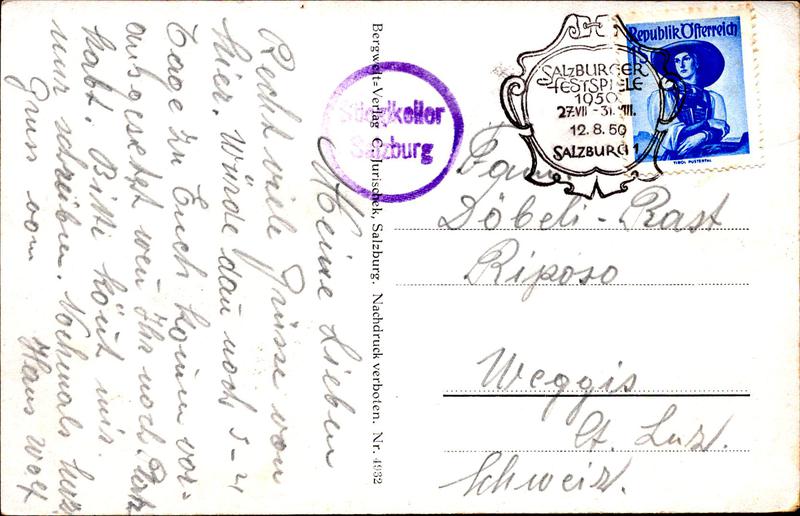 Meine Lieben
Recht viele Grüsse von
hier. Würde dan noch 3-4
Tage zu Euch komen vor-
ausgesetzt wen Ihr noch Platz
habt. Bitte könt mir
nur schreiben. Nochmals herzl
Gruss vom Hans Wolf
Bergwelt=Verlag C. Jurischek, Salzburg. Nachdruck verboten. Nr. 4932
Stieglkeller
Salzburg
SALZBURGER
FESTSPIELE
1950
27.VII - 31.VIII.
12.8.50
SALZBURG 1
Republik Österreich
TIROL PUSTERTAL
Fam.
Döbeli-Rast
Riposo
Weggis
Ct. Luz.
Schweiz.